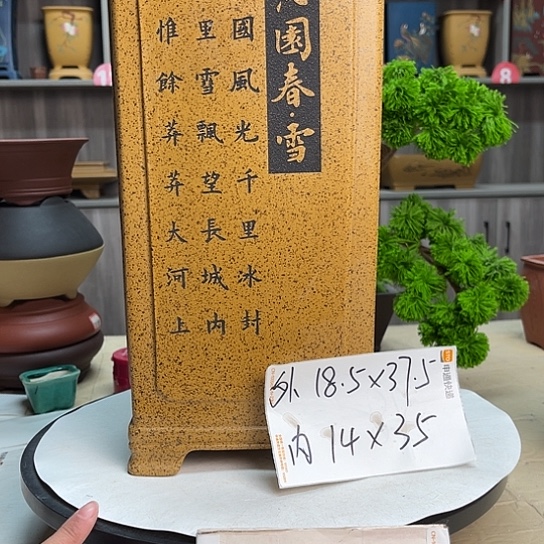 園春·雪
國風光千里冰封
里雪飄望長城内
惟餘莽莽大河上
外 18.5×37.5
内 14×35
申通快递
8